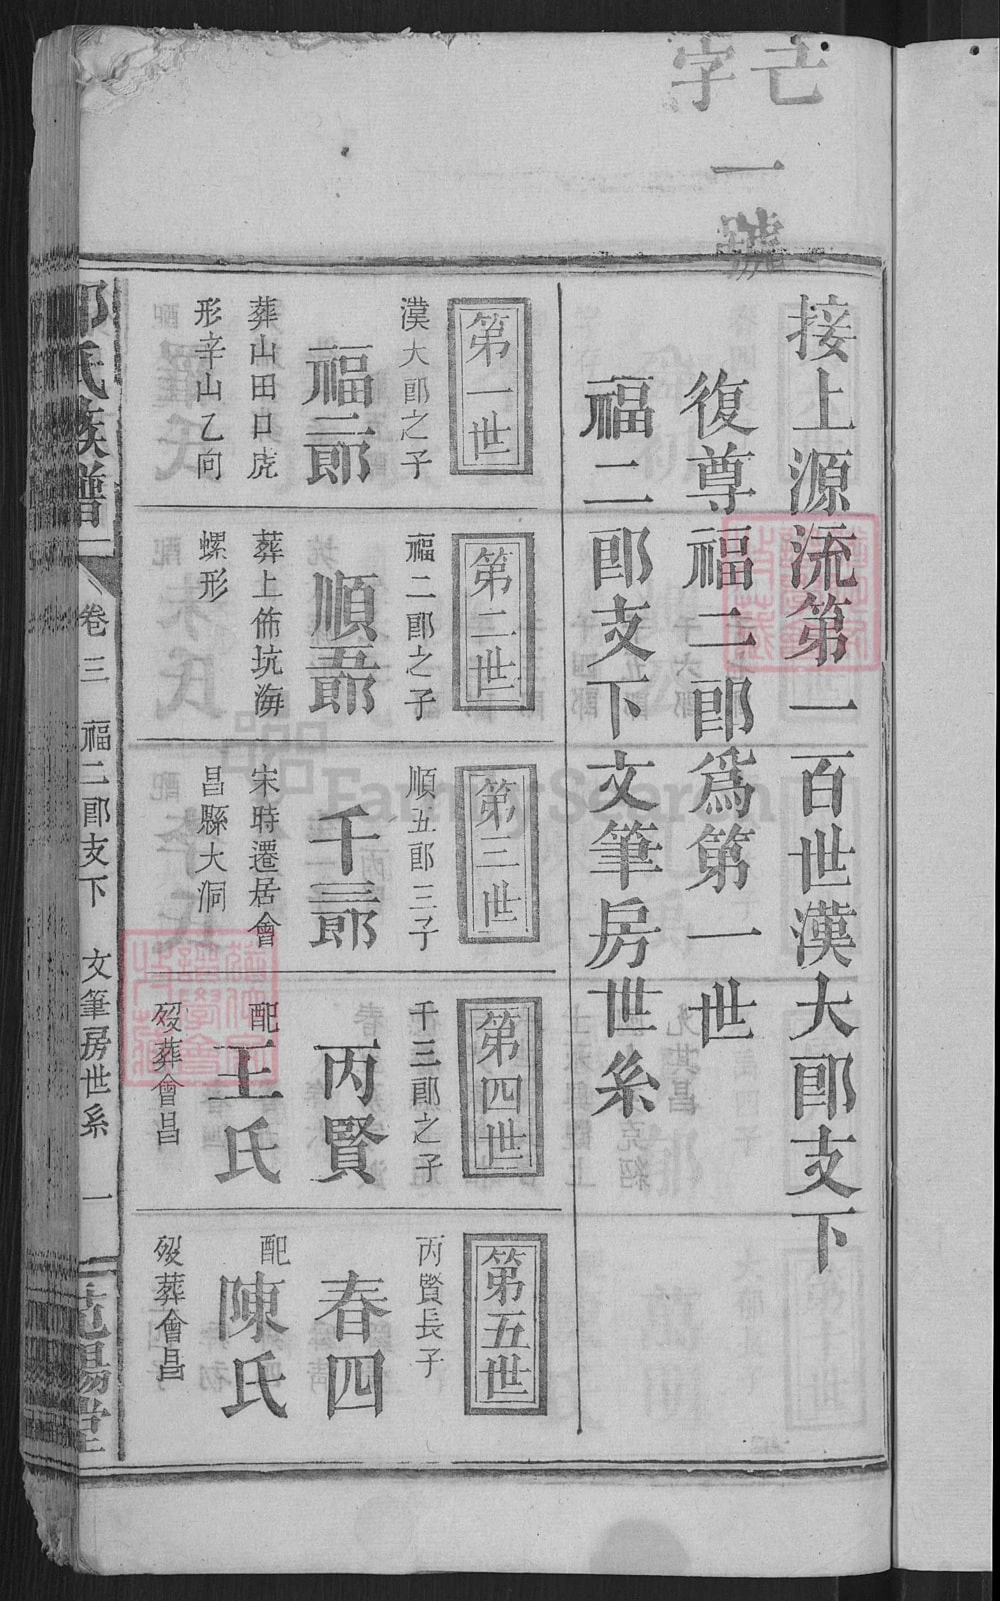 亡字
一號
接上源流第一百世漢大郎支下
復尊福二郎為第一世
福二郎支下文筆房世系
第一世
漢大郎之子
福二郎
葬山田口虎
形辛山乙向
第二世
福二郎之子
順五郎
葬上佈坑海
螺形
第三世
順五郎三子
千三郎
宋時遷居會
昌縣大洞
第四世
千三郎之子
丙賢
配
王氏
歿葬會昌
第五世
丙賢長子
春四
配
陳氏
歿葬會昌
氏族譜
卷三
福二郎支下
文筆房世系
一
堂
FamilySearch